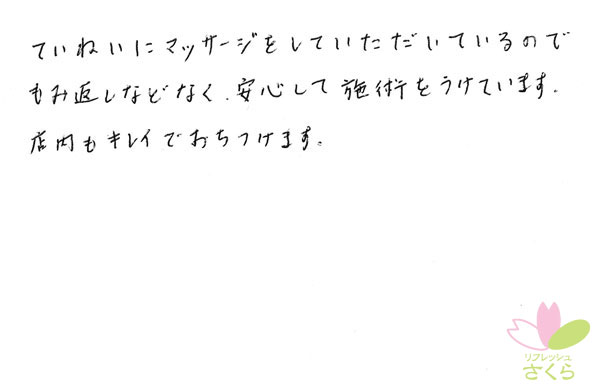 ていねいにマッサージをしていただいているので
もみ返しなどなく、安心して施術をうけています。
店内もキレイでおちつけます。
リフレッシュ
さくら